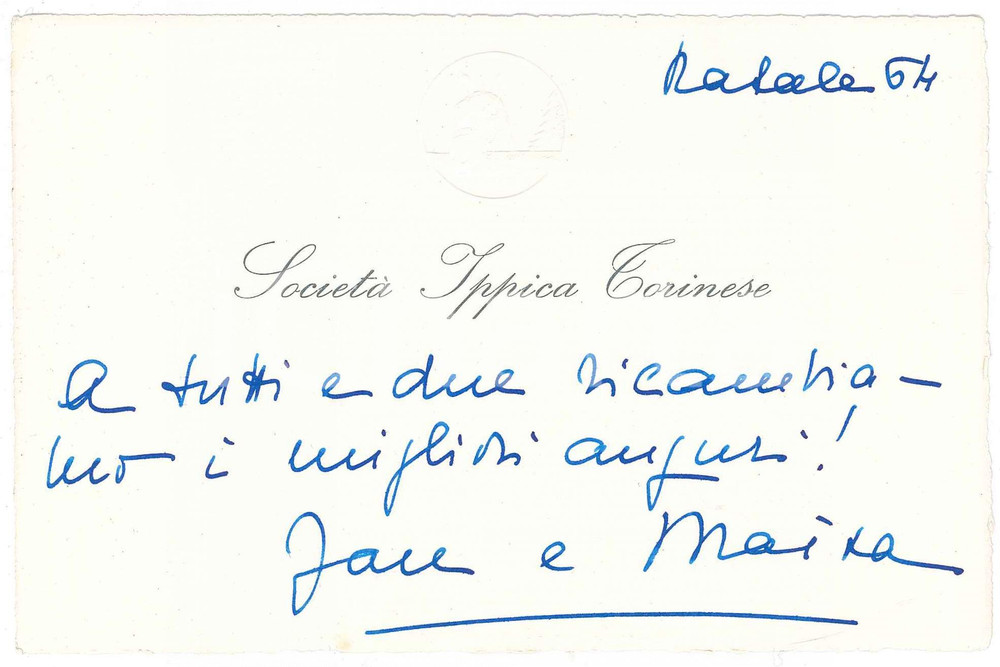 Natale 64
Società Ippica Torinese
A tutti e due ricambia-
mo i migliori auguri!
e